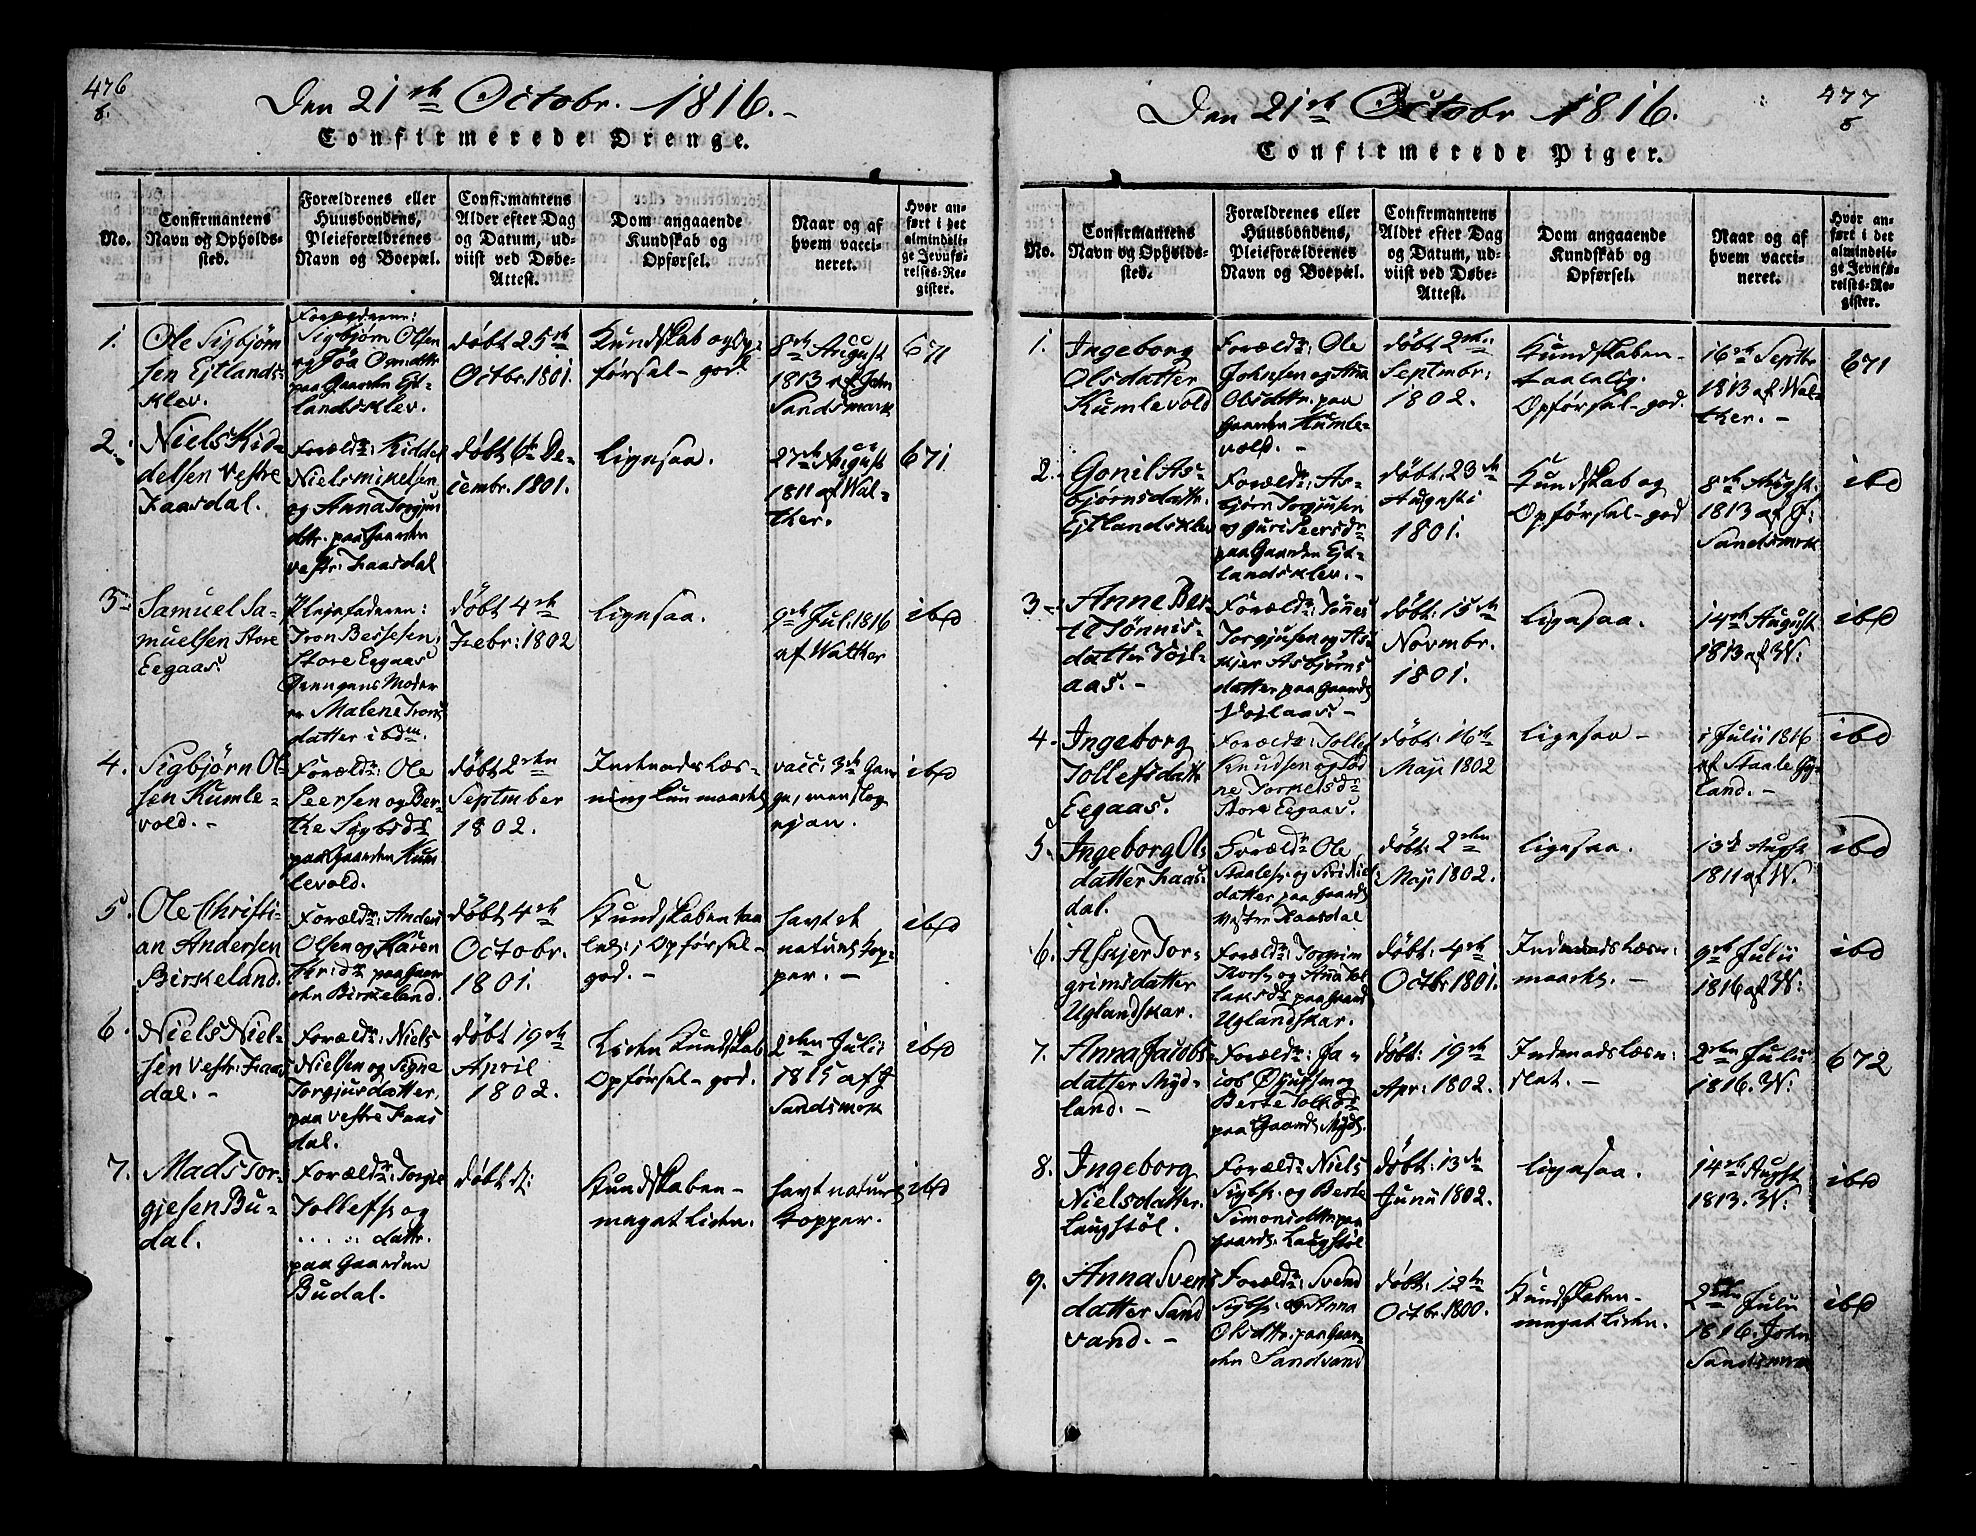 476
8.
Den 21de Octobr. 1816.-
Confirmerede Drenge.
No.
Confirmantens
Navn og Opholds-
sted.
Forældrenes eller
Huusbondens,
Pleieforældrenes
Navn og Boepæl.
Confirmantens
Alder efter Dag
og Datum, ud-
viist ved Døbe-
Attest.
Dom angaaende
Kundskab og
Opførsel.
Naar og af
hvem vacci-
neret.
Hvor an-
ført i det
almindeli-
ge Jevnfø-
relses-Re-
gister.
1.
Ole Sigbjørn
sen Ejtlands-
klev.
Forældrene:
Sigbjørn Olsen
paa Gaarden Ejt-
landsklev.
døbt 25de
Octbr. 1801.
Kundskab og Op-
førsel - god
8de August
1813 af John
Sandsmark
671
2.
Niels Kid-
delsen Vestre
Faasdal.
Foræld: Kiddel
Nielsmikelsen
og Anna Torgjus
dttr. paa Gaarden
vestr: Faasdal
døbt 6te De-
cembr. 1801.
ligesaa.
27de August
1811 af Wal-
ther.
671
3
Samuel Sa-
muelsen Store
Eegaas.
Plejefaderen:
Tron Bessesen,
Store Eegaas
Drengens Moder
er Malene Trons
datter ibdm.
døbt 4de
Febr: 1802
ligesaa.
9de Jul. 1816
af Walther
ibd
4.
Sigbjørn Ol-
sen Kumle-
vold. -
Foræld: Ole
Peersen og Ber-
the Sigbsdr
paa Gaarden Kum
levold.
døbt 2den
September
1802.
Indenadslæs-
ning kun maadel
vacc: 3de Gan
ge, men slog
ejan.
ibd
5.
Ole Christi-
an Andersen
Birkeland.
Foræld: Anders
Olsen og Karen
paa Gaar
den Birkeland.
døbt 4de
Octobr.
1801.
Kundskaben taa
lel: ; Opførsel -
god. -
havt de
naturl: kop-
per. -
ibd
6.
Niels Niel-
sen Vestr: Faas
dal. -
Foræld: Niels
Nielsen og Signe
Torgjusdatter,
paa Vestre Faas
dal.
døbt 19de
April
1802.
Liden Kundskab
Opførsel - god.
2den Julii
1815 af J
Sandsmrk
ibd
7.
Mads Tor-
gjesen Bu-
dal.
Foræld: Torgie
Tollefs. og
..... dattr.
paa Gaarden
Budal.
døbt d:
Kundskaben -
meget liden.
havt naturl
kopper.
ibd
477
8
Den 21de Octobr 1816.
Confirmerede Piger.
No.
Confirmantens
Navn og Opholds-
sted.
Forældrenes eller
Huusbondens,
Pleieforældrenes
Navn og Boepæl.
Confirmantens
Alder efter Dag
og Datum, ud-
viist ved Døbe-
Attest.
Dom angaaende
Kundskab og
Opførsel.
Naar og af
hvem vacci-
neret.
Hvor an-
ført i det
almindeli-
ge Jevnfø-
relses-Re-
gister.
1.
Ingeborg
Olsdatter
Kumlevold
Foræld: Ole
Johnsen og Ana
Olsdttr. paa
Gaarden Kumle-
vold. -
døbt 2den
Septmbr:
1802.
Kundskaben -
taalelig.
Opførsel - god.
16de Septbr
1813 af Wal-
ther. -
671
2.
Gonil As-
bjørnsdattr.
Ejtlandsklev
Foræld: As-
bjørn Torgjusen
og Guri Peersdr
paa Gaarden Ejt-
landsklev. -
døbt: 23de
Augusti
1801.
Kundskab og
Opførsel - god
8de Augst.
1813 af J:
Sandsmrk
ibd
3
Anne Ber-
te Tønnis-
datter Vojl-
aas. -
Foræld: Tønnes
Torgjusen og As-
kjer Asbjørns
datter paa Gaarden
Vojlaas. -
døbt: 15de
Novmbr.
1801.
ligesaa.
14de August
1813 af W:
ibd
4.
Ingeborg
Tollefsdattr
Eegaas.
Foræld: Tollef
Knudsen og
Torkelsdr
Store Eegaas.
døbt: 16de
Maji 1802
ligesaa -
i Julii 1816
af Staale Gy-
land. -
ibd
5.
Ingeborg Ols
datter Faas-
dal.
Foræld: Ole
Staales. og Siri Niels
datter paa Gaarden
Vestre Faasdal
døbt: 2den
Maji 1802.
ligesaa.
13de Augst
1811 af W.
ibd
6.
Askjer Tor-
grimsdatter
Uglandskar.
Foræld: Torgrim
og Ana
paa Gaard
Uglandskar.
døbt: 4de
Octbr 1801.
Indenadslæsn:
maadel. -
9de Julii
1816 af W:
ibd
7.
Anna Jacobs-
datter Myd-
land. -
Foræld: Ja-
cob Osjufsen og
Berte
paa Gaard: Mydl.
døbt: 19de
Apr: 1802.
Indenadslæsn:
slet. -
2den Julii
1816. W:
672
8.
Ingeborg
Nielsdatter
Laugstøl.
Foræld: Niels
Sigbs. og Berte
Simonsdattr. paa
Gaard: Laugstøl
døbt: 13de
Junii 1802.
ligesaa.
14de Augst
1813. W:
ibd
9.
Anna Svens
datter Sand
vand. -
Foræld: Svend
Sigbs. og Anna
Olsdttr. paa Gaar-
den Sandvand
døbt: 12te
Octbr. 1800.
Kundskaben -
meget liden.
2den Julii
1816. John
Sandsmrk
ibd